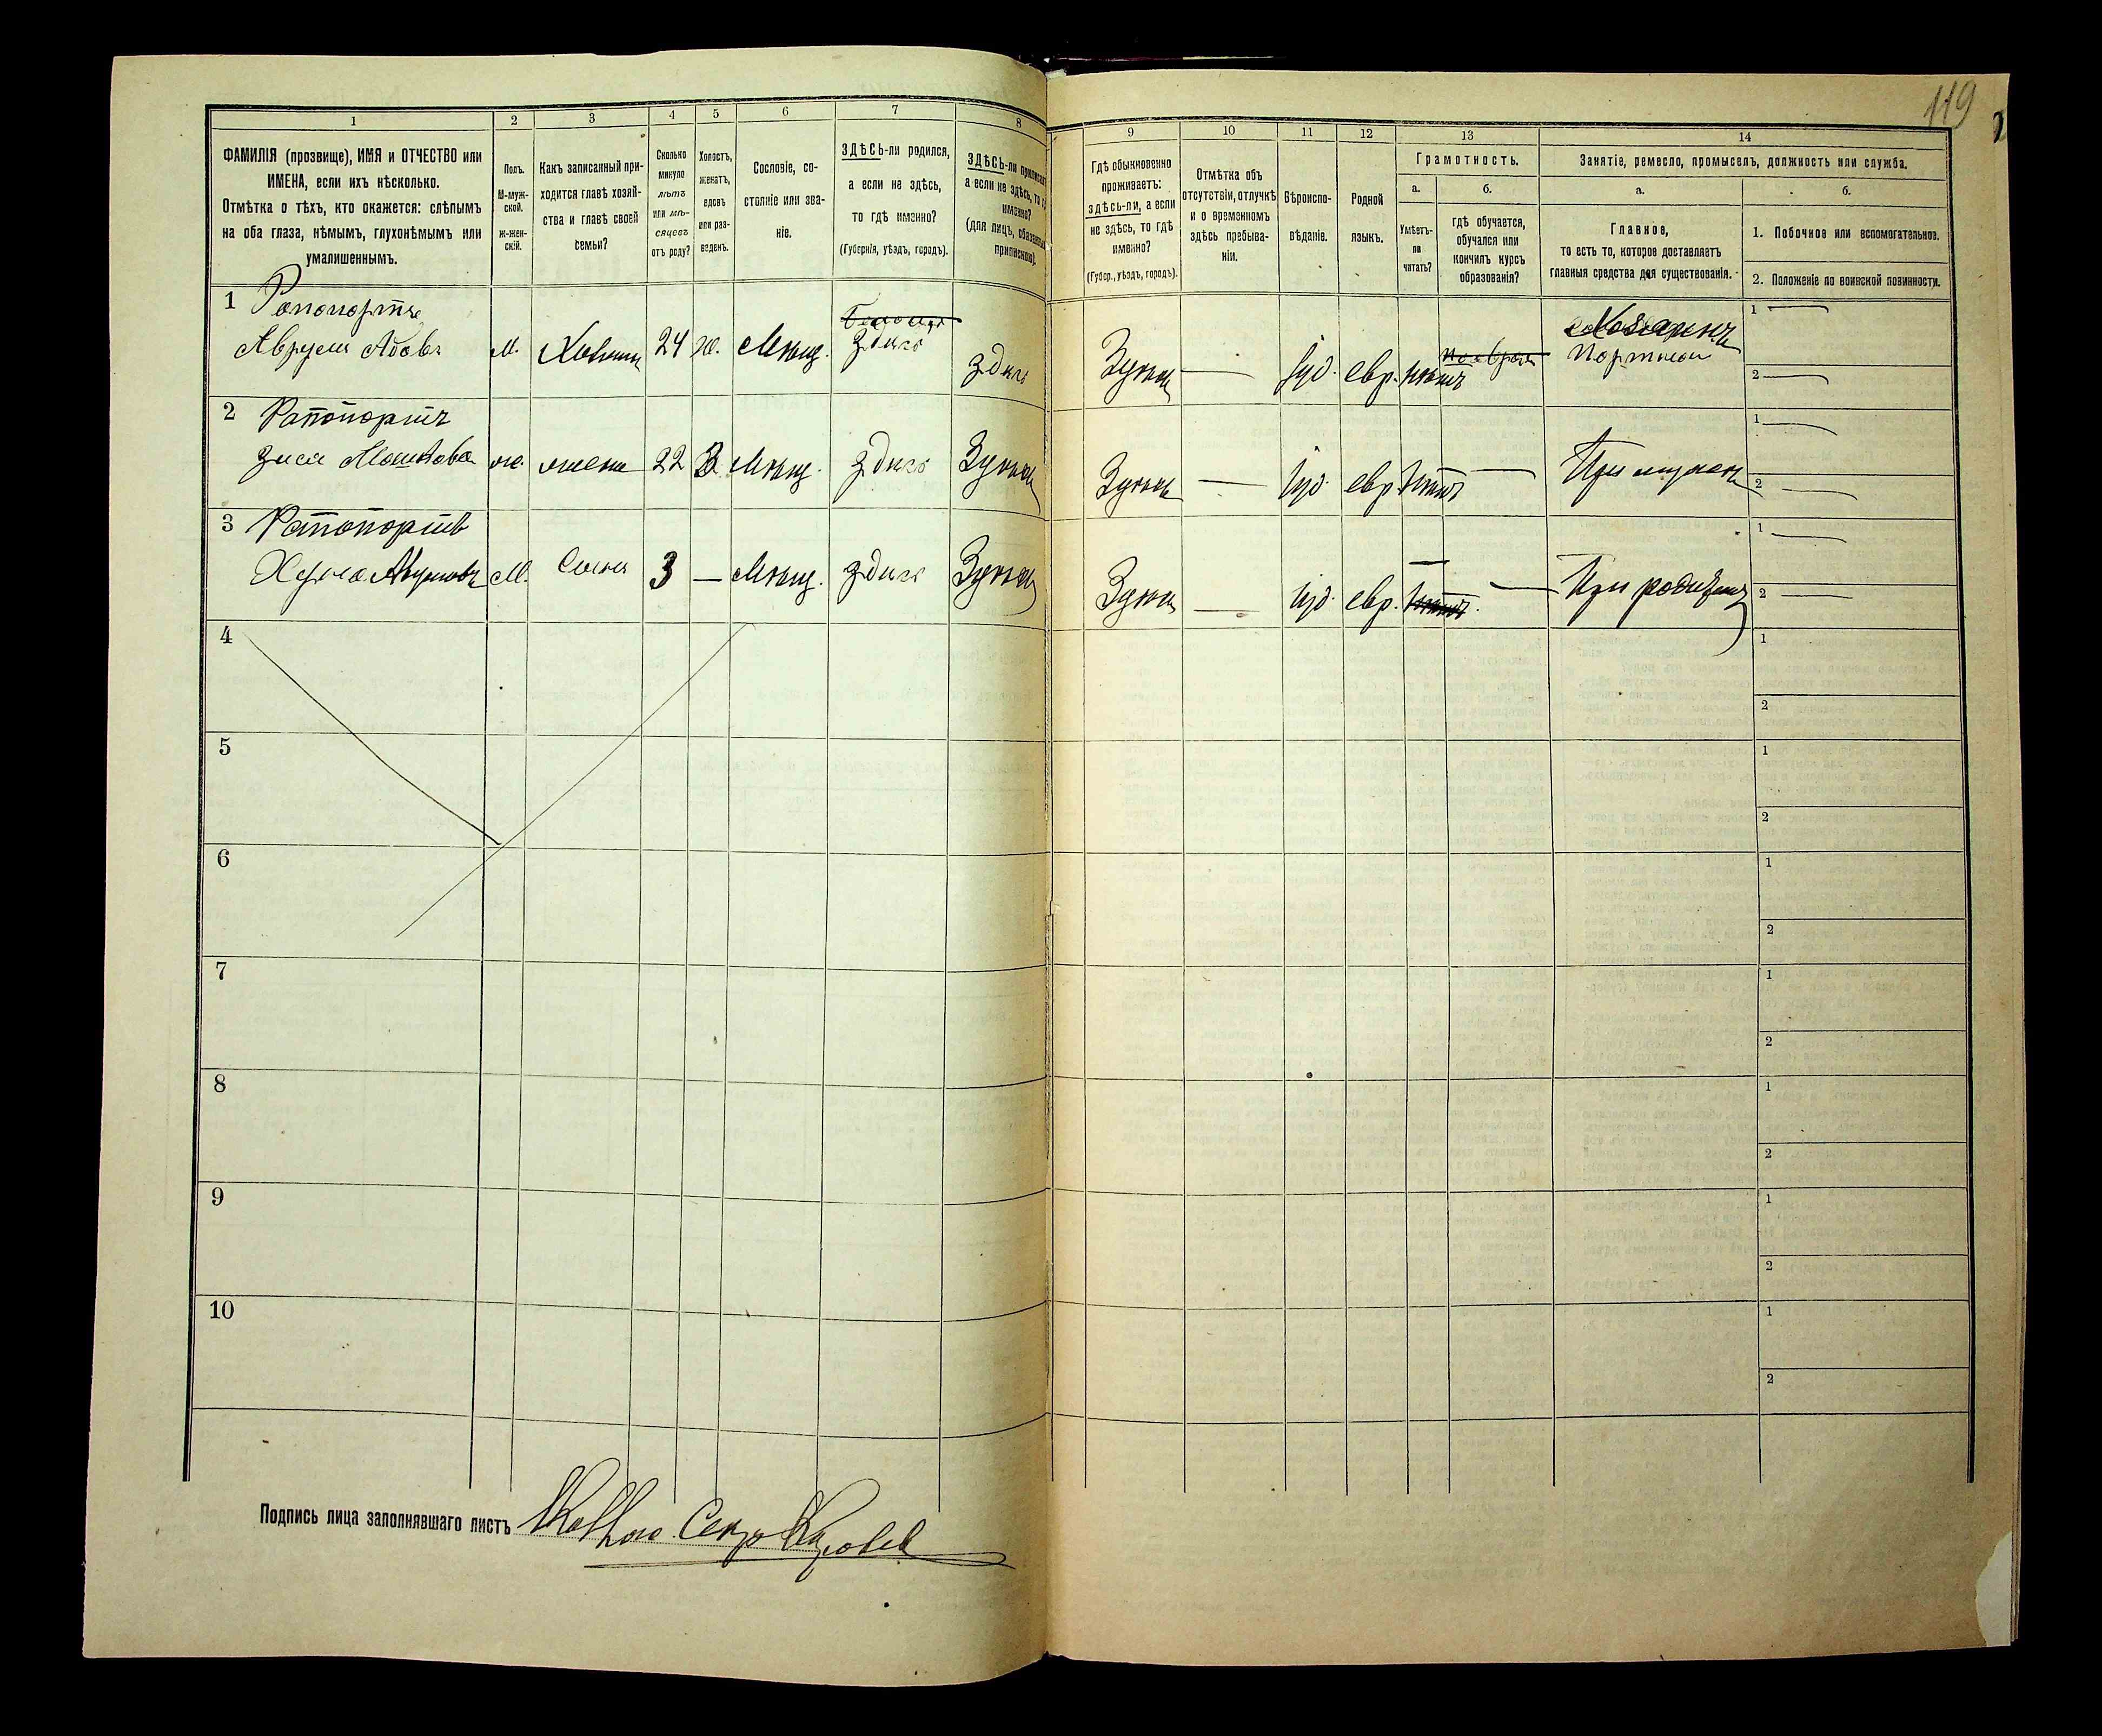 119
1
2
3
4
5
6
7
8
9
10
11
12
13
14
ФАМИЛІЯ (прозвище), ИМЯ и ОТЧЕСТВО или
ИМЕНА, если ихъ нѣсколько.
Отмѣтка о тѣхъ, кто окажется: слѣпымъ
на оба глаза, нѣмымъ, глухонѣмымъ или
умалишеннымъ.
Полъ.
М-муж-
ской.
ж-жен-
скій.
Какъ записанный при-
ходится главѣ хозяй-
ства и главѣ своей
семьи?
Сколько
минуло
лѣтъ
или мѣ-
сяцевъ
отъ роду?
Холостъ,
женатъ,
вдовъ
или раз-
веденъ.
Сословіе, со-
стояніе или зва-
ніе.
ЗДѢСЬ-ли родился,
а если не здѣсь,
то гдѣ именно?
(Губернія, уѣздъ, городъ).
ЗДѢСЬ-ли приписанъ
а если не здѣсь, то гдѣ
именно?
(для лицъ, обязанныхъ
припиской).
Гдѣ обыкновенно
проживаетъ:
здѣсь-ли, а если
не здѣсь, то гдѣ
именно?
(Губер., уѣздъ, городъ).
Отмѣтка объ
отсутствіи, отлучкѣ
и о временномъ
здѣсь пребыва-
ніи.
Вѣроиспо-
вѣданіе.
Родной
языкъ.
Грамотность.
а.
б.
Умѣетъ-
ли
читать?
гдѣ обучается,
обучался или
кончилъ курсъ
образованія?
Занятіе, ремесло, промыселъ, должность или служба.
а.
б.
Главное,
то есть то, которое доставляетъ
главныя средства для существованія.
1. Побочное или вспомогательное.
2. Положеніе по воинской повинности.
1 Рапопортъ
Аврумъ Абовъ М. Хозяинъ 24 Ж. Мѣщ. здѣсь здѣсь Зуньк — Іуд. евр. нѣтъ Хозяинъ
Портной 1 — 2 —
2 Рапопортъ
Зися Мошкова ж. жена 22 З Мѣщ. здѣсь Зуньк Зуньк — Іуд. евр. нѣтъ — При мужѣ 1 — 2 —
3 Рапопортъ
Аврумовъ М. Сынъ 3 — Мѣщ. здѣсь Зуньк Зуньк — Іуд. евр. — — При родителяхъ 1 — 2 —
4 1 2
5 1 2
6 1 2
7 1 2
8 1 2
9 1 2
10 1 2
Подпись лица заполнявшаго листъ